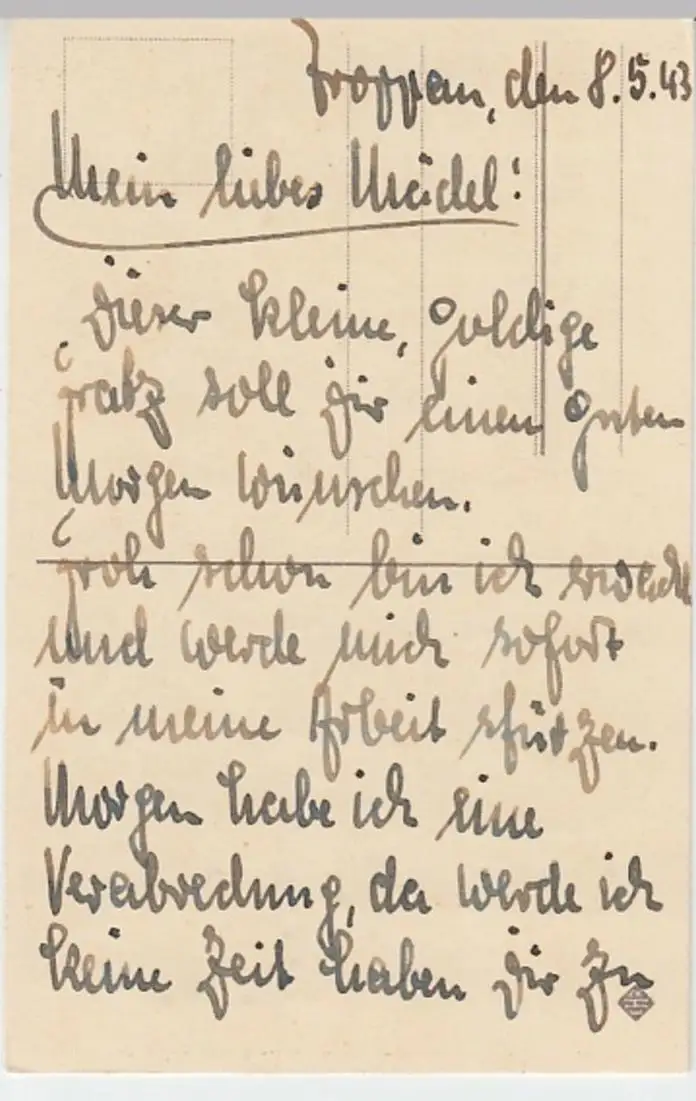 Troppau, den 8.5.43
Mein liebes Mädel!
Dieser kleine, goldige
Fratz soll Dir einen guten
Morgen wünschen.
Froh schon bin ich erwacht
und werde mich sofort
in meine Arbeit stürzen.
Morgen habe ich eine
Verabredung, da werde ich
keine Zeit haben Dir zu